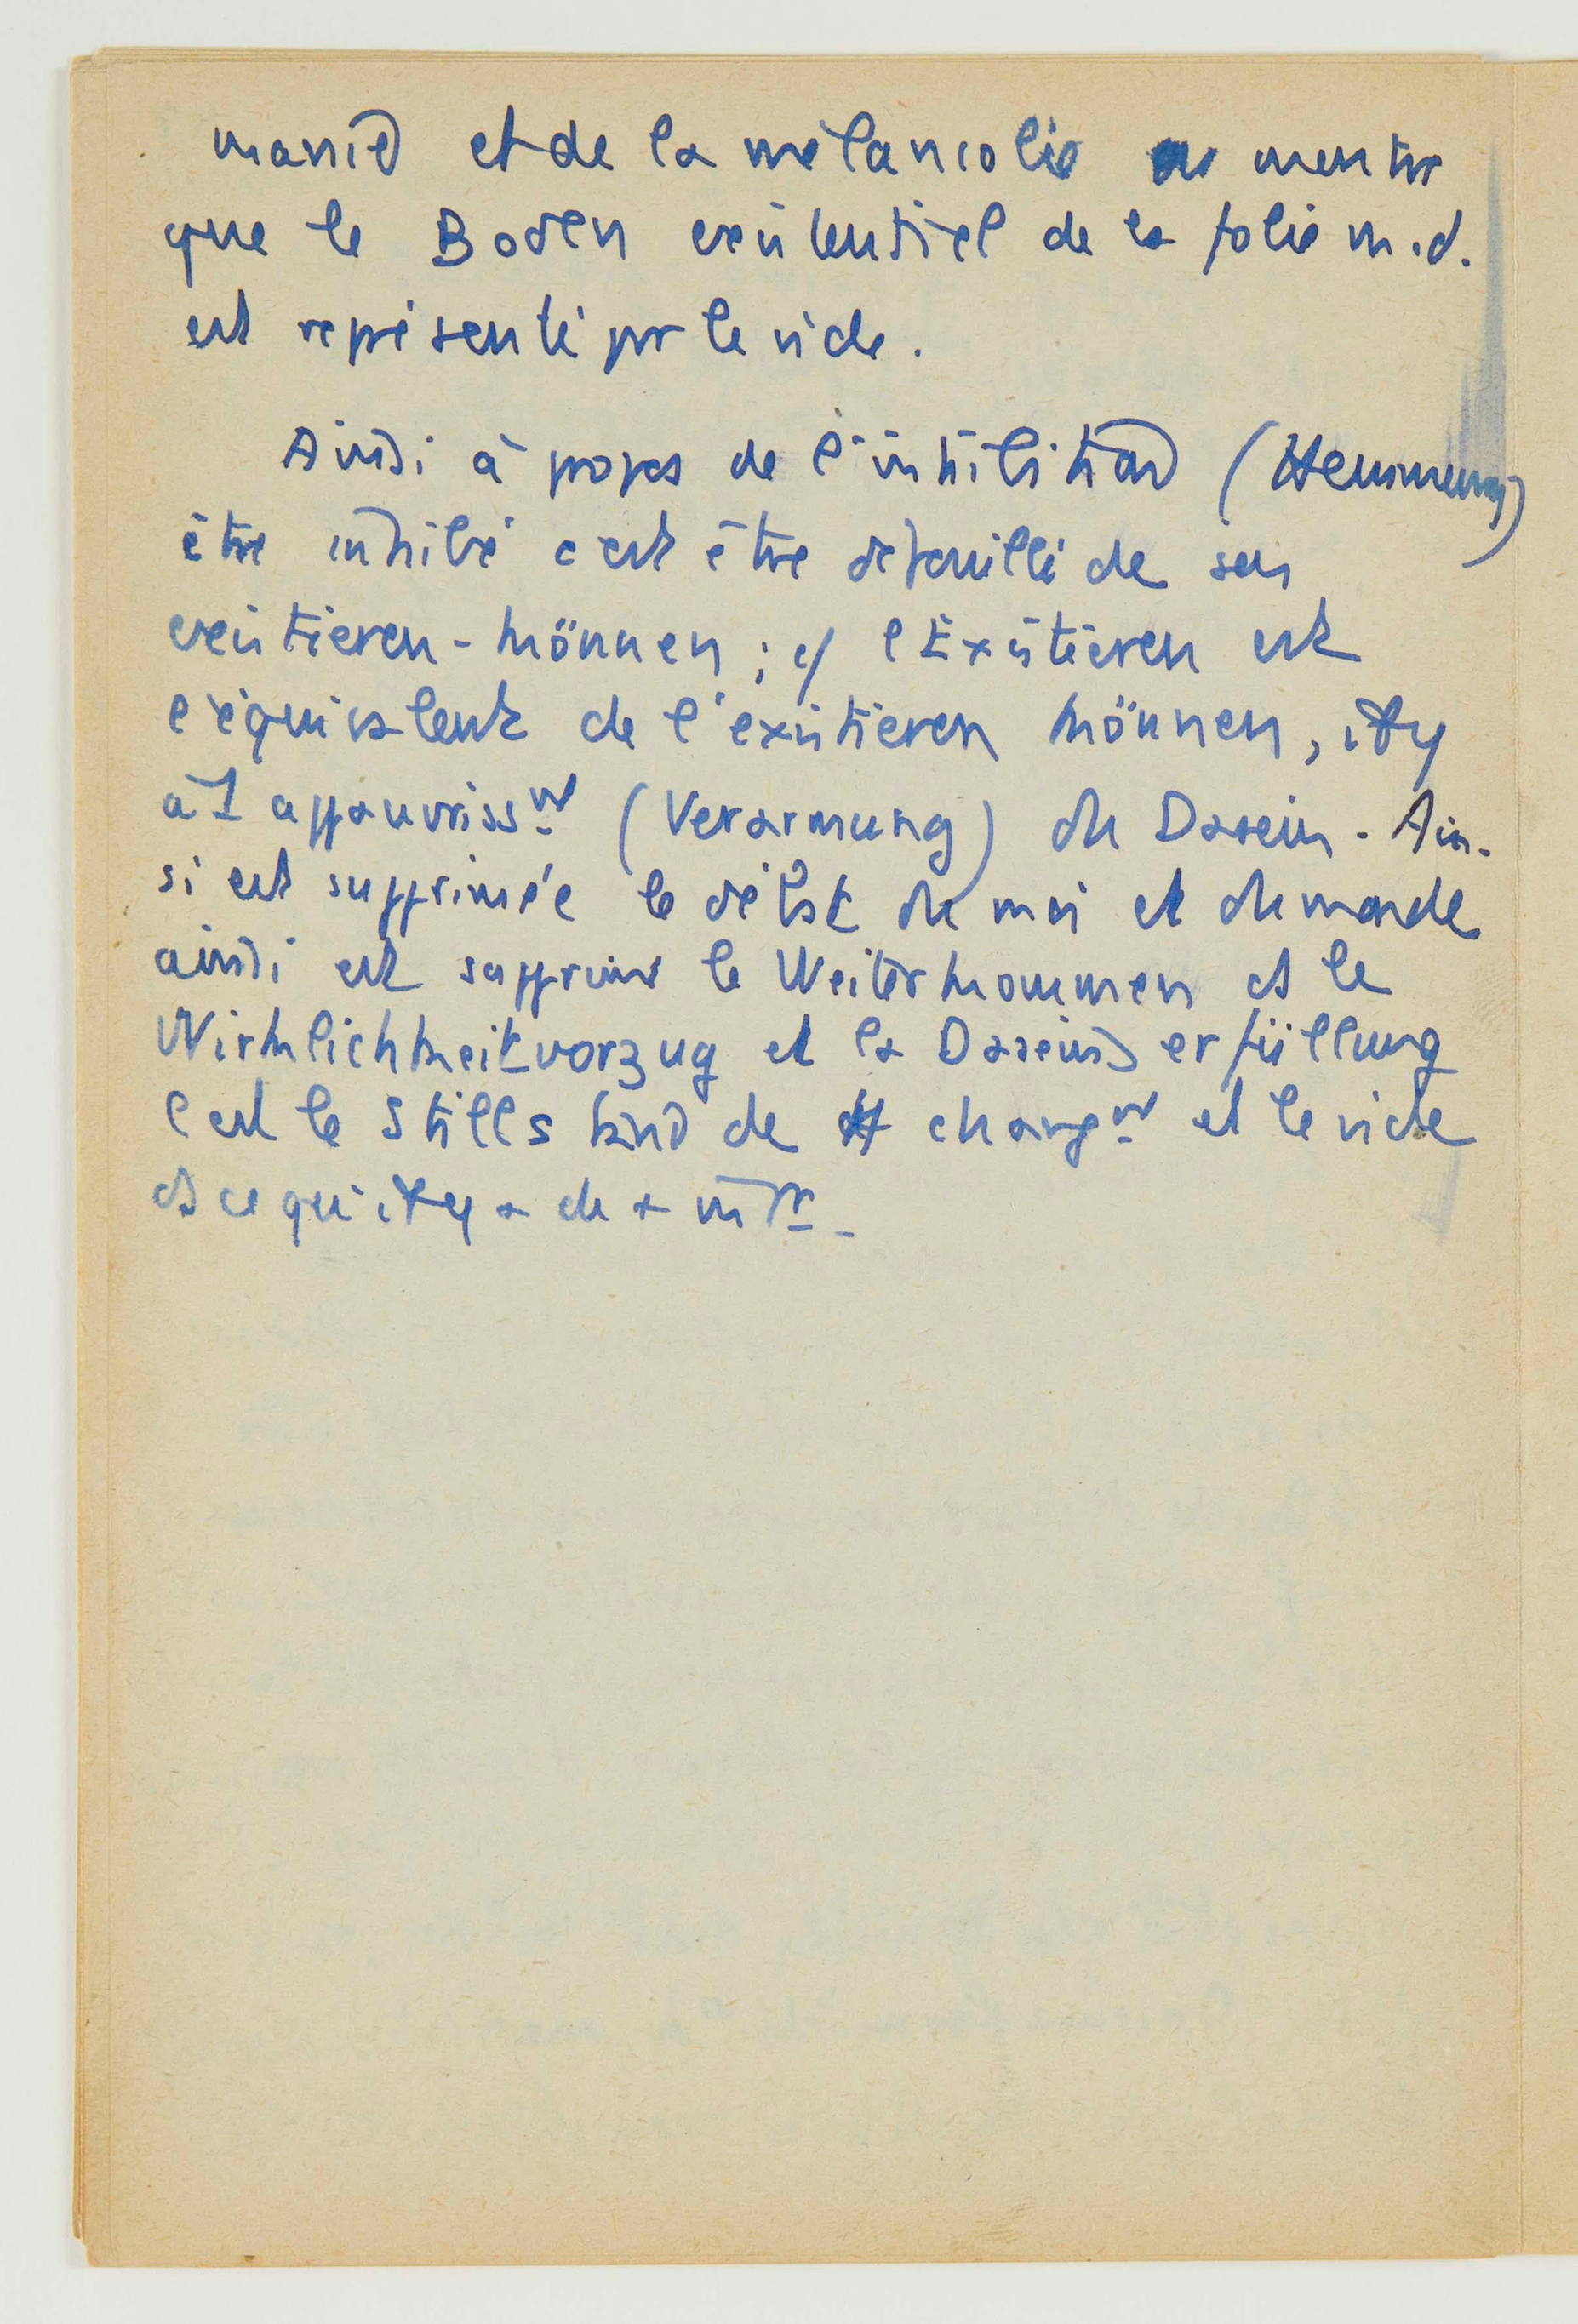 manie et de la mélancolie montre
que le Boden existentiel de la folie m.d.
est représenté pr le vide.
Ainsi à propos de l'inhibition (Hemmung)
être inhibé c'est être dépouillé de son
existieren-können ; c/ l'Existieren est
l'équivalent de l'existieren können, il y
a 1 appauvrisst (Verarmung) du Dasein. Ain-
si est supprimée le débat du moi et du monde
ainsi est supprimé le Weiterkommen et le
Wirklichkeitvorzug et la Daseinserfüllung
C'est le Stillstand de changt et le vide
et ce qu'il y a de